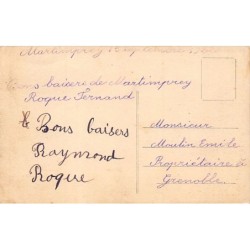 Martimprey
Bons baisers de Martimprey
Roque Fernand
Bons baisers
Raymond
Roque
Monsieur
Moulin Emile
Propriétaire à
Grenoble